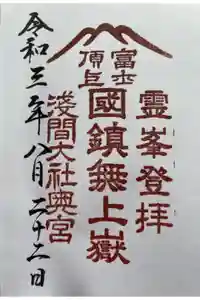 霊峯登拝
富士
頂上
國鎮無上嶽
淺間大社奥宮
令和三年八月二十二日